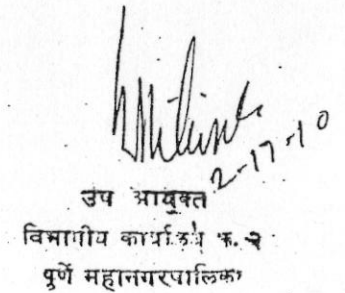 2-17-10
उप आयुक्त
विभागीय कार्यालय क्र. २
पुणें महानगरपालिका